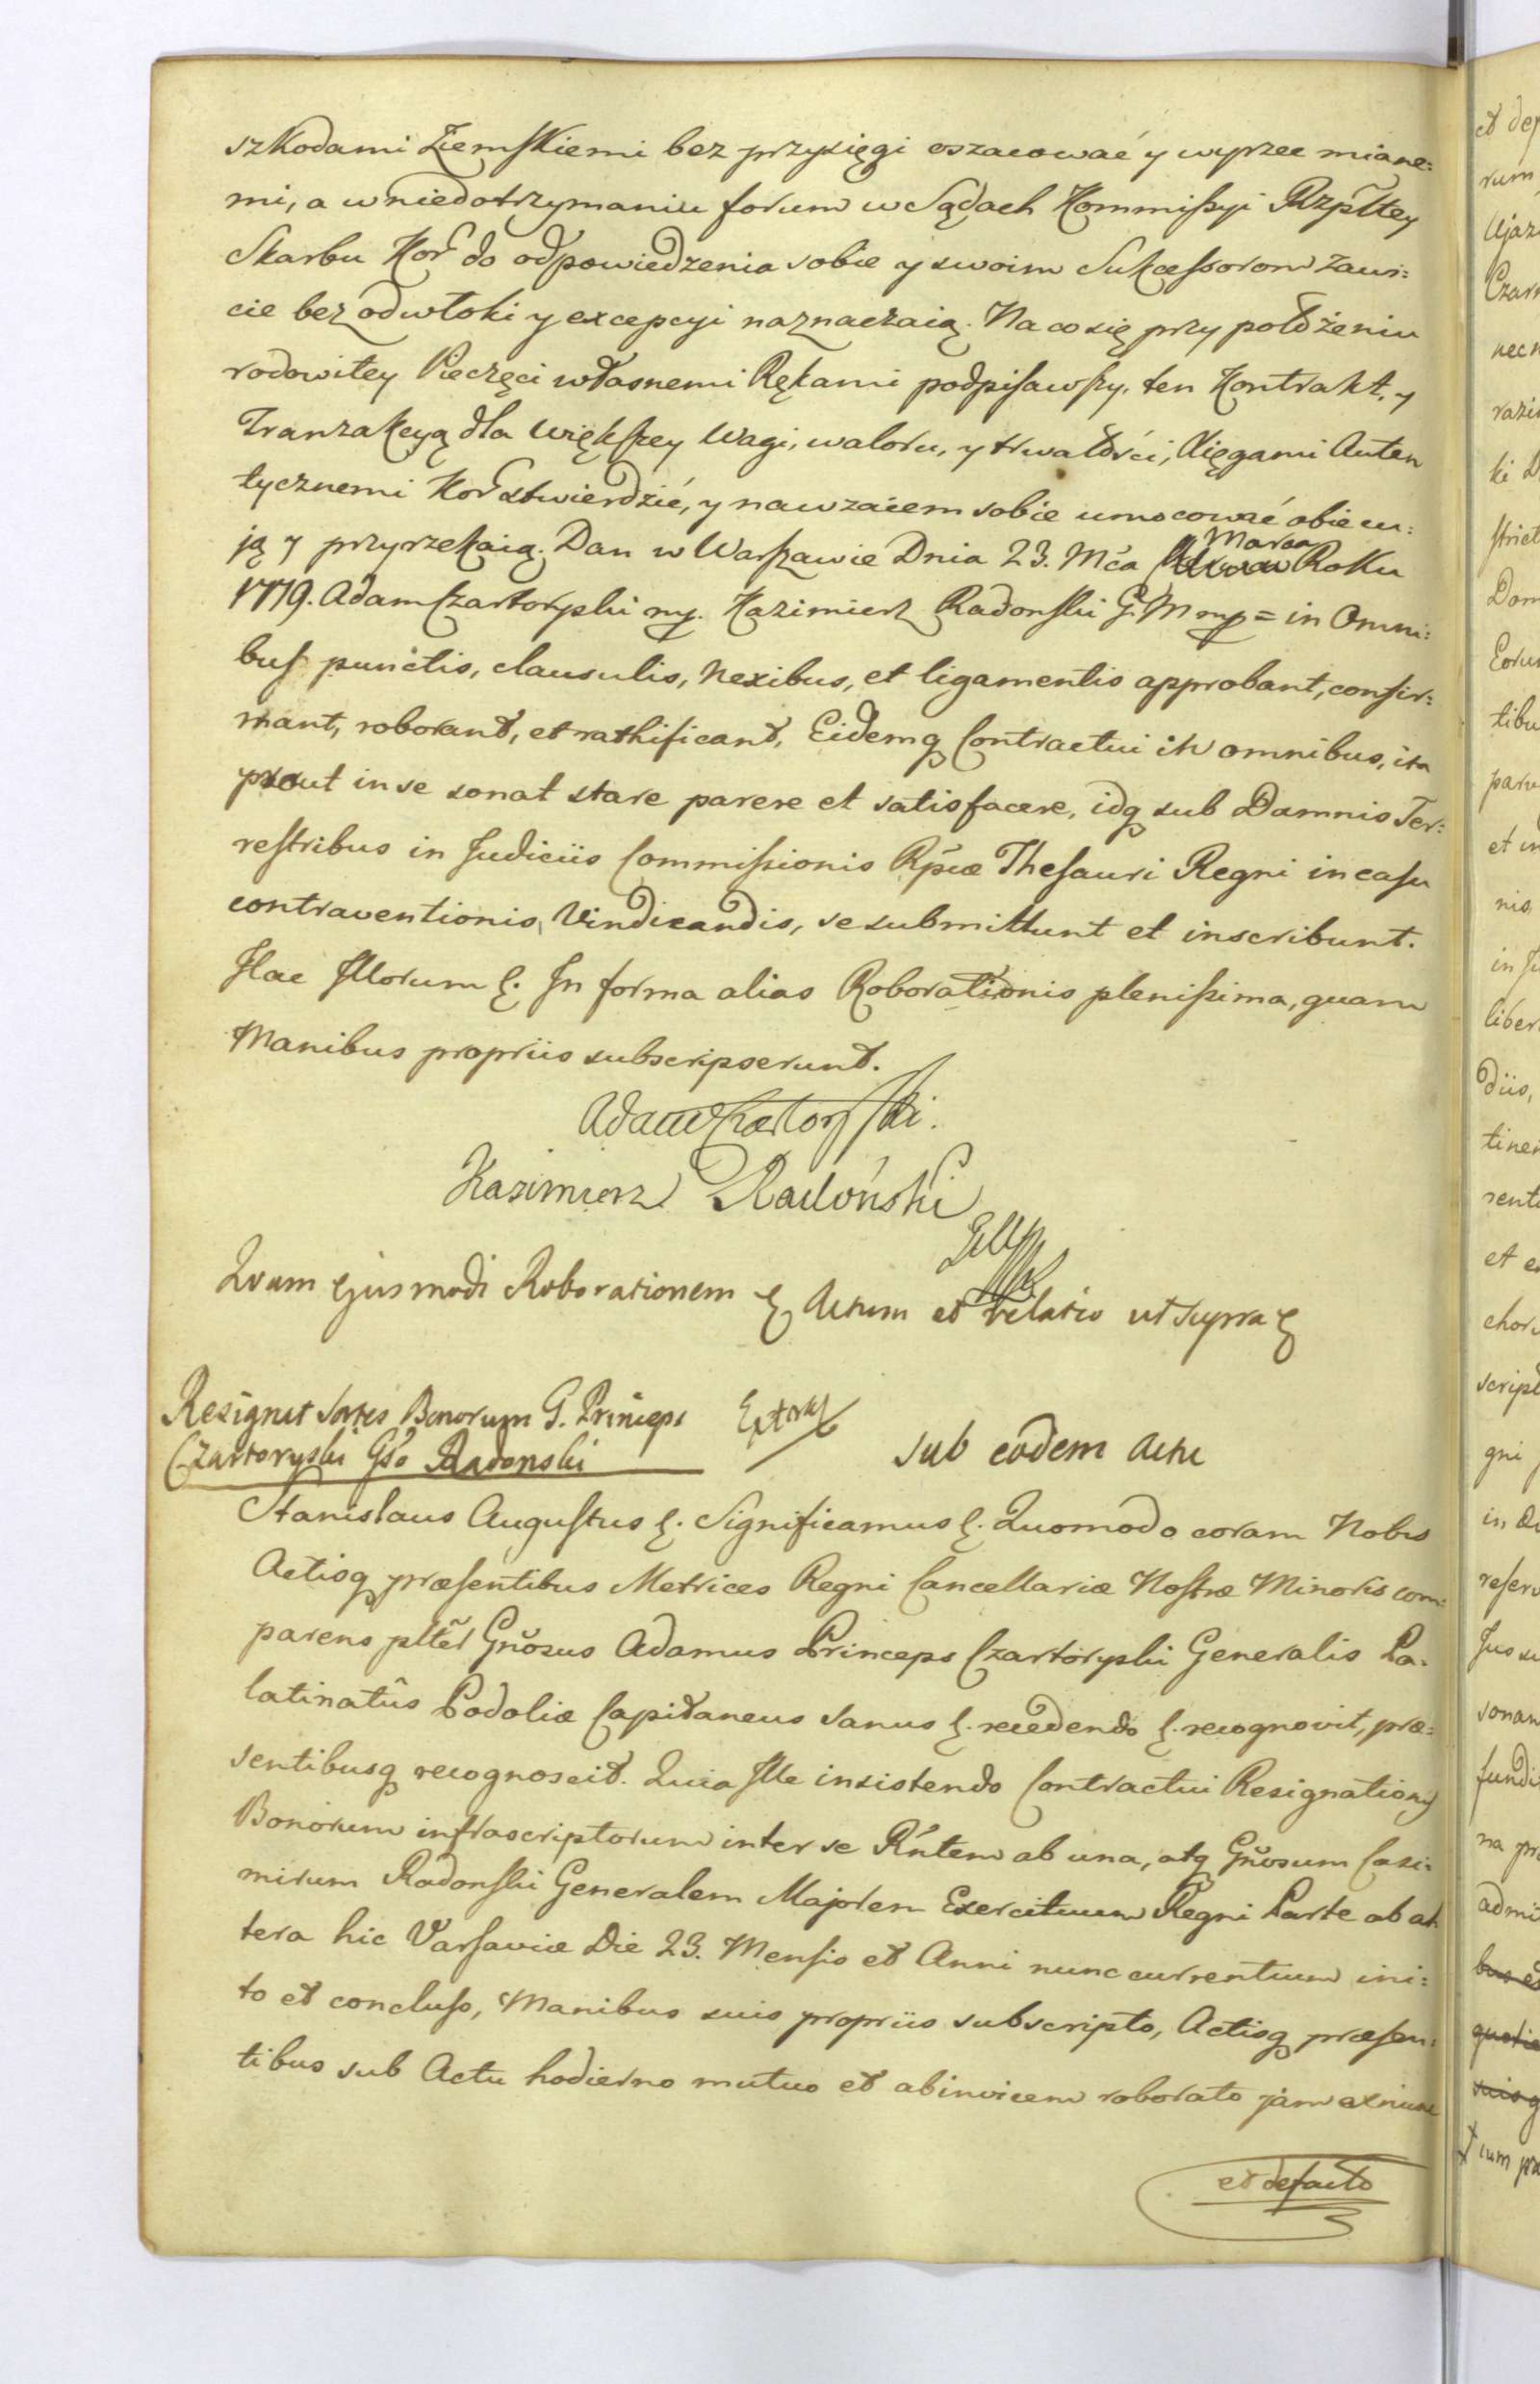 szkodami Ziemskiemi bez przysięgi oszacować y wyprzec miane=
mi, a w niedotrzymaniu forum w Sądach Kommißyi Rzpltey
Skarbu Kor do odpowiedzenia sobie y swoim Sukcessorom zawi=
cie bez odwłoki y excepcyi naznaczaią. Na co się przy położeniu
rodowitey Pieczęci własnemi Rękami podpisawszy, ten Kontrakt, y
Tranzakcyą dla większey Wagi, waloru, y trwałości, Xięgami Auten
tycznemi Kor stwierdzić, y nawzaiem sobie umocować obiecu=
ją y przyrzekaią. Dan w Warszawie Dnia 23. Mca Marca Roku
1779. Adam Czartoryski mp. Kazimierz Radonski G. M mp = in Omni=
bus punctis, clausulis, Nexibus, et ligamentis approbant, confir=
mant, roborant, et rathificant, Eidemq Contractui in omnibus, ita
prout in se sonat stare parere et satisfacere, idq sub Damnis Ter=
restribus in Judiciis Commißionis Rpcæ Thesauri Regni in casu
contraventionis, Vindicandis, se submittunt et inscribunt.
Hac Illorum &. In forma alias Roborationis plenißima, quam
Manibus propriis subscripserunt.
Adam Czartoryski.
Kazimierz Radoński
GMmp
Quam ejusmodi Roborationem & Actum et relatio ut supra &
Resignat Sortes Bonorum G. Princeps
Czartoryski Gso Radonski
Extrad
sub eodem Actu
Stanislaus Augustus &. Significamus &. Quomodo coram Nobis
Actisq præsentibus Metrices Regni Cancellariæ Nostræ Minoris com=
parens plter Gnosus Adamus Princeps Czartoryski Generalis Pa=
latinatûs Podoliæ Capitaneus sanus &. recedendo &. recognovit, præ=
sentibusq recognoscit. Quia Ille insistendo Contractui Resignationis
Bonorum infrascriptorum inter se Rntem ab una, atq Gnosum Casi=
mirum Radonski Generalem Majorem Exercituum Regni Parte ab al
tera hic Varsaviæ Die 23. Mensis et Anni nunc currentium ini=
to et concluso, Manibus suis propriis subscripto, Actisq præsen=
tibus sub Actu hodierno mutuo et abinvicem roborato jam ex nunc
et de facto